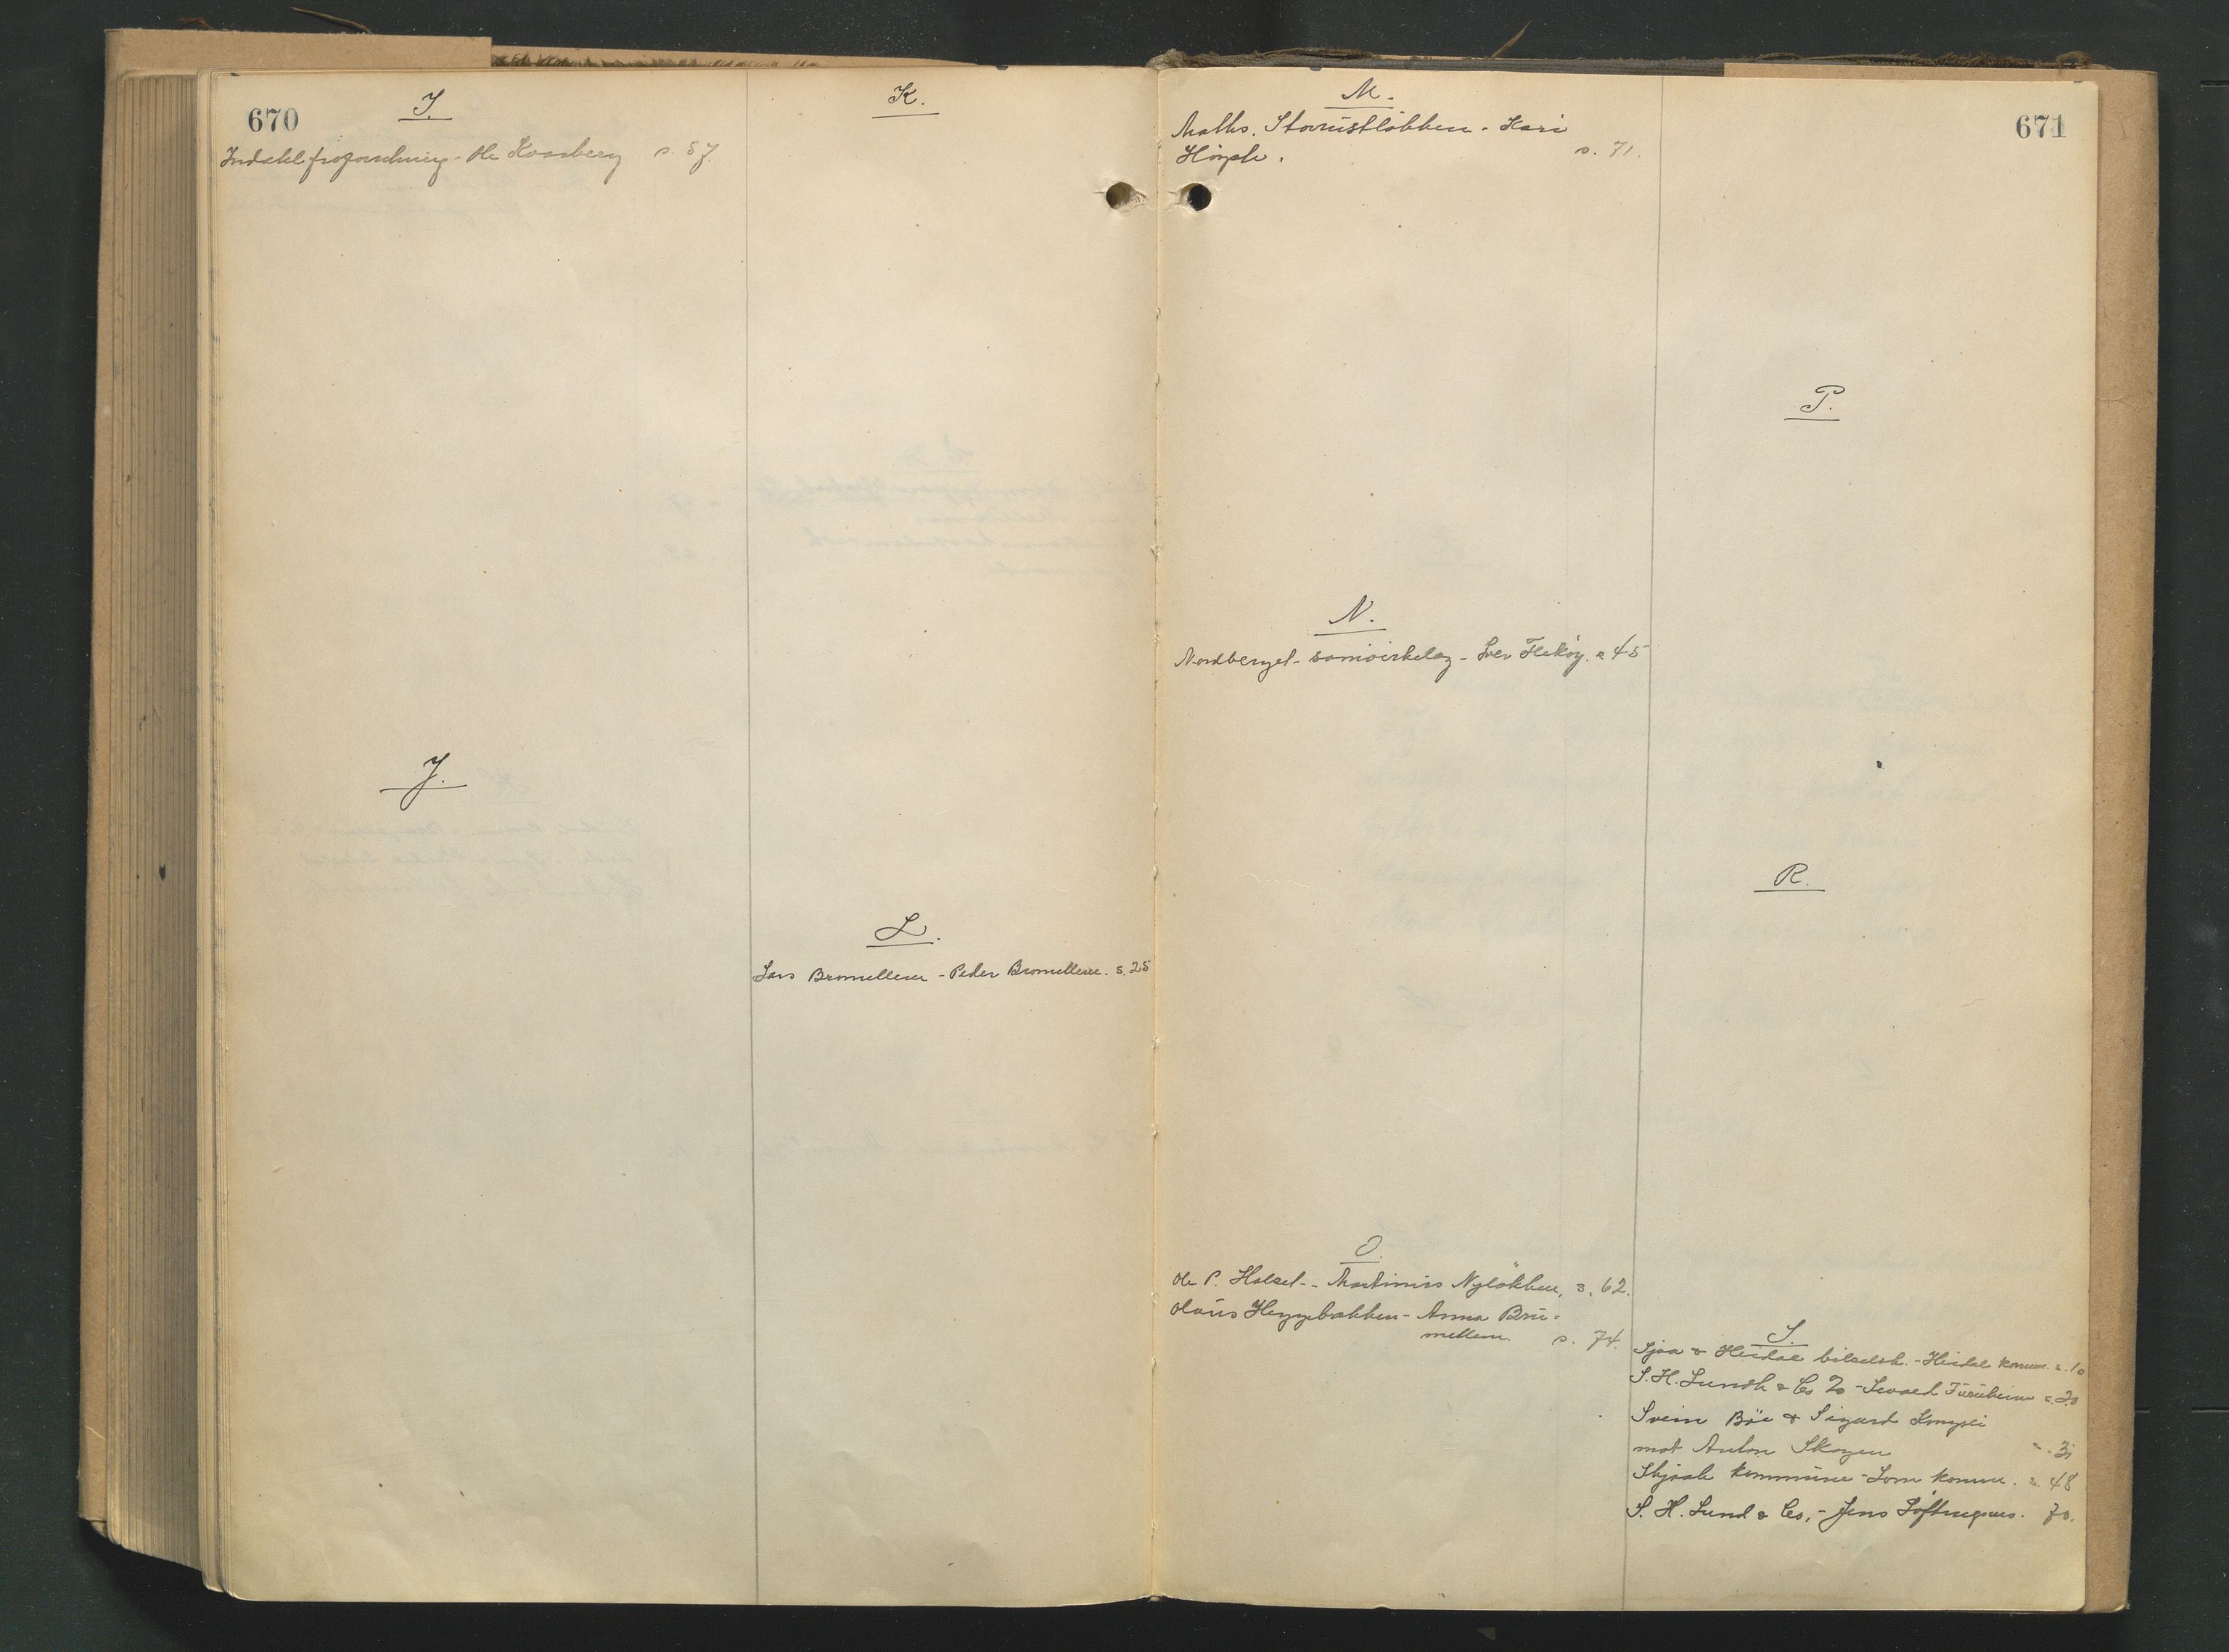 670
I.
Ole Kvarberg s. 57.
J.
K.
L.
Lars Bromellem - Peder Bromellem. s. 25
M.
Maths. Storrustløkken - Kari
s. 71.
N.
Nordberget - samvirkelag - Iver Flekøy. s 45
O.
Ole P. Holset - Martinius Nyløkken, s. 62.
Olaus Heggebakken - Anna Bru-
mellem. s. 74.
671
P.
R.
S.
Sjoa & Heidal bilselsk. - Heidal komm. s. 10
S. H. Lundh & Co - Sevald Furuheim s. 20
Svein Bøe & Sigurd
mot Anton Skogen
Skjåk kommune - Lom komm. s. 48
S. H. Lund & Co, - Jens 70.